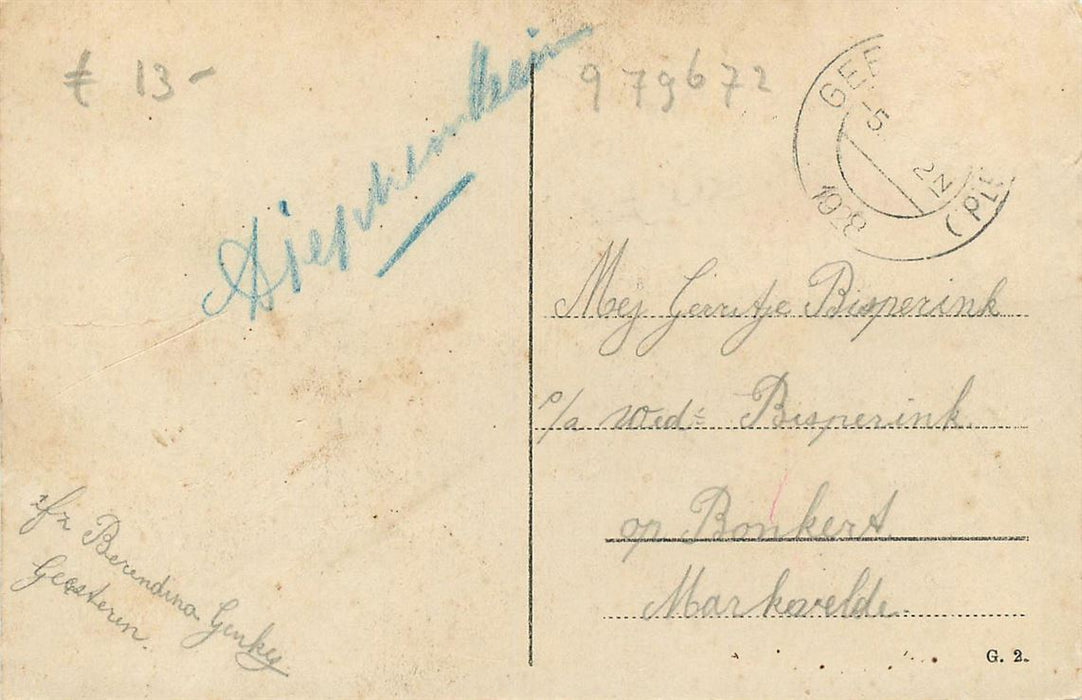 € 13-
Diepenheim
979672
GEE
-5
2N
1938
(PL
Mej Gerritje Bisperink
p/a wed: Bisperink
op Bonkert
Markvelde.
a/z Berendina
Geesteren.
G. 2.